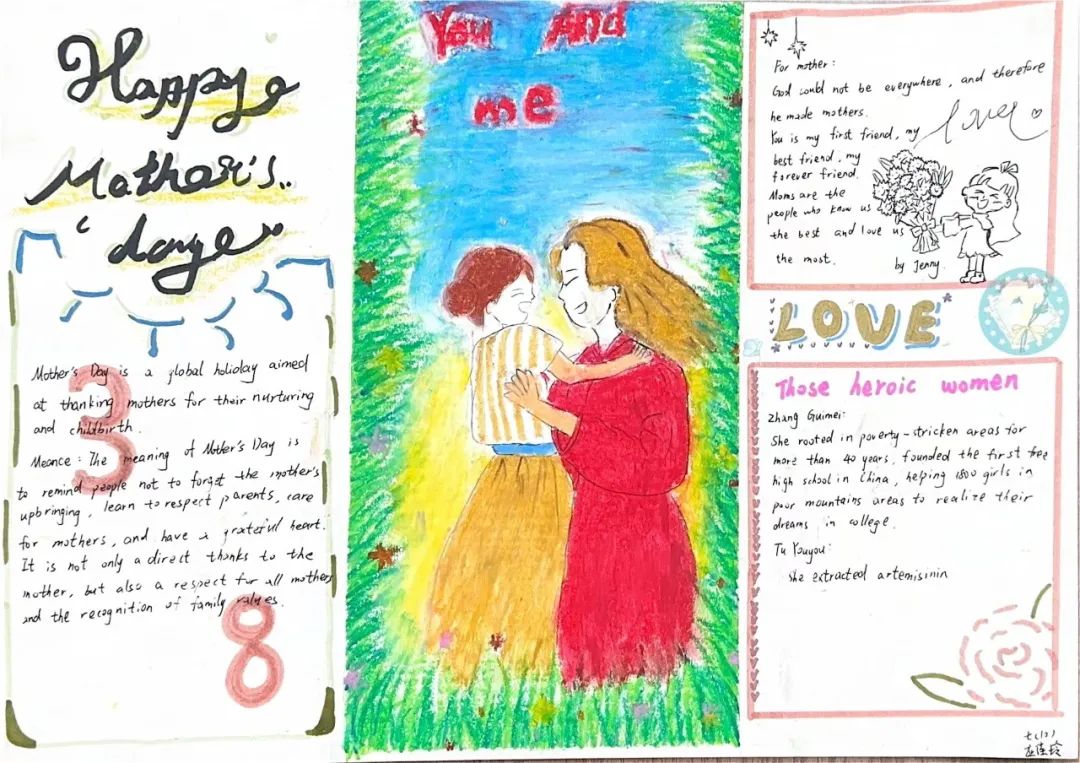 Happy
Mather's
daye
3
8
Mother's Day is a global holiday aimed
at thanking mothers for their nurturing
and childbirth.
Meance: The meaning of Mother's Day is
to remind people not to forget the mother's
upbringing, learn to respect parents, care
for mothers, and have a grateful heart.
It is not only a direct thanks to the
mother, but also a respect for all mothers
and the recognition of family values.
You And
me
For mother:
God could not be everywhere, and therefore
he made mothers.
You is my first friend, my
best friend, my
forever friend.
Moms are the
people who know us
the best and love us
the most.
by Jenny.
love
LOVE
Those heroic women
Zhang Guimei:
She rooted in poverty-stricken areas for
more than 40 years, founded the first free
high school in China, helping 1800 girls in
poor mountains areas to realize their
dreams in college.
Tu Youyou:
She extracted artemisinin
七(12)